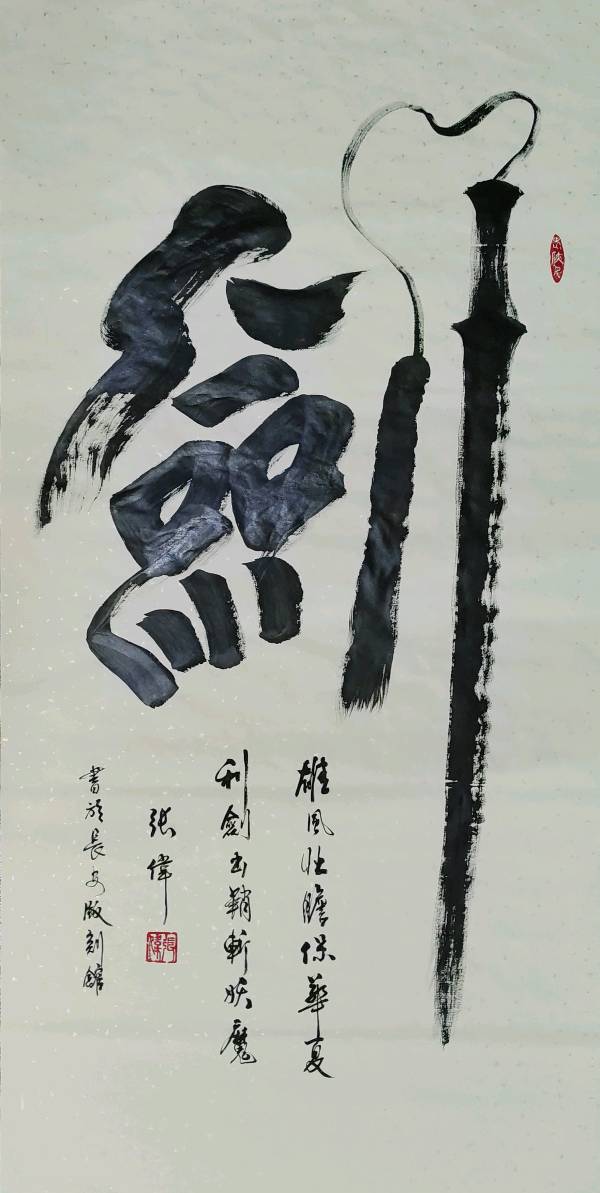 劍
雄風壯膽保華夏
利劍出鞘斬妖魔
張偉
書於長安版刻館
張偉